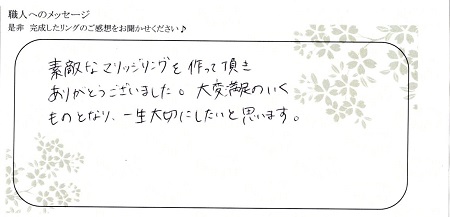 職人へのメッセージ
是非 完成したリングのご感想をお聞かせください♪
素敵なマリッジリングを作って頂き
ありがとうございました。大変満足のいく
ものとなり、一生大切にしたいと思います。